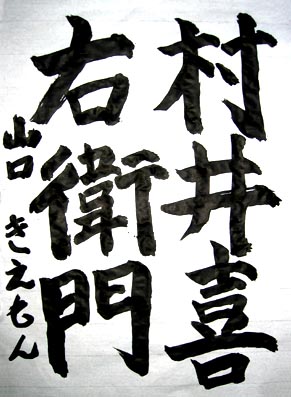 村井喜
右衛門
山口 きえもん